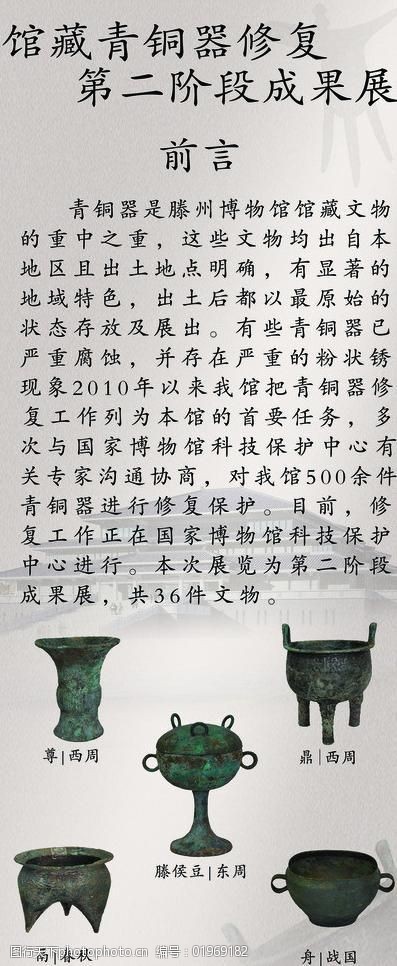 馆藏青铜器修复
第二阶段成果展
前言
青铜器是滕州博物馆馆藏文物
的重中之重，这些文物均出自本
地区且出土地点明确，有显著的
地域特色，出土后都以最原始的
状态存放及展出。有些青铜器已
严重腐蚀，并存在严重的粉状锈
现象2010年以来我馆把青铜器修
复工作列为本馆的首要任务，多
次与国家博物馆科技保护中心有
关专家沟通协商，对我馆500余件
青铜器进行修复保护。目前，修
复工作正在国家博物馆科技保护
中心进行。本次展览为第二阶段
成果展，共36件文物。
尊|西周
鼎|西周
滕侯豆|东周
鬲|春秋
舟|战国
图行天下 photophoto.cn 编号：01969182